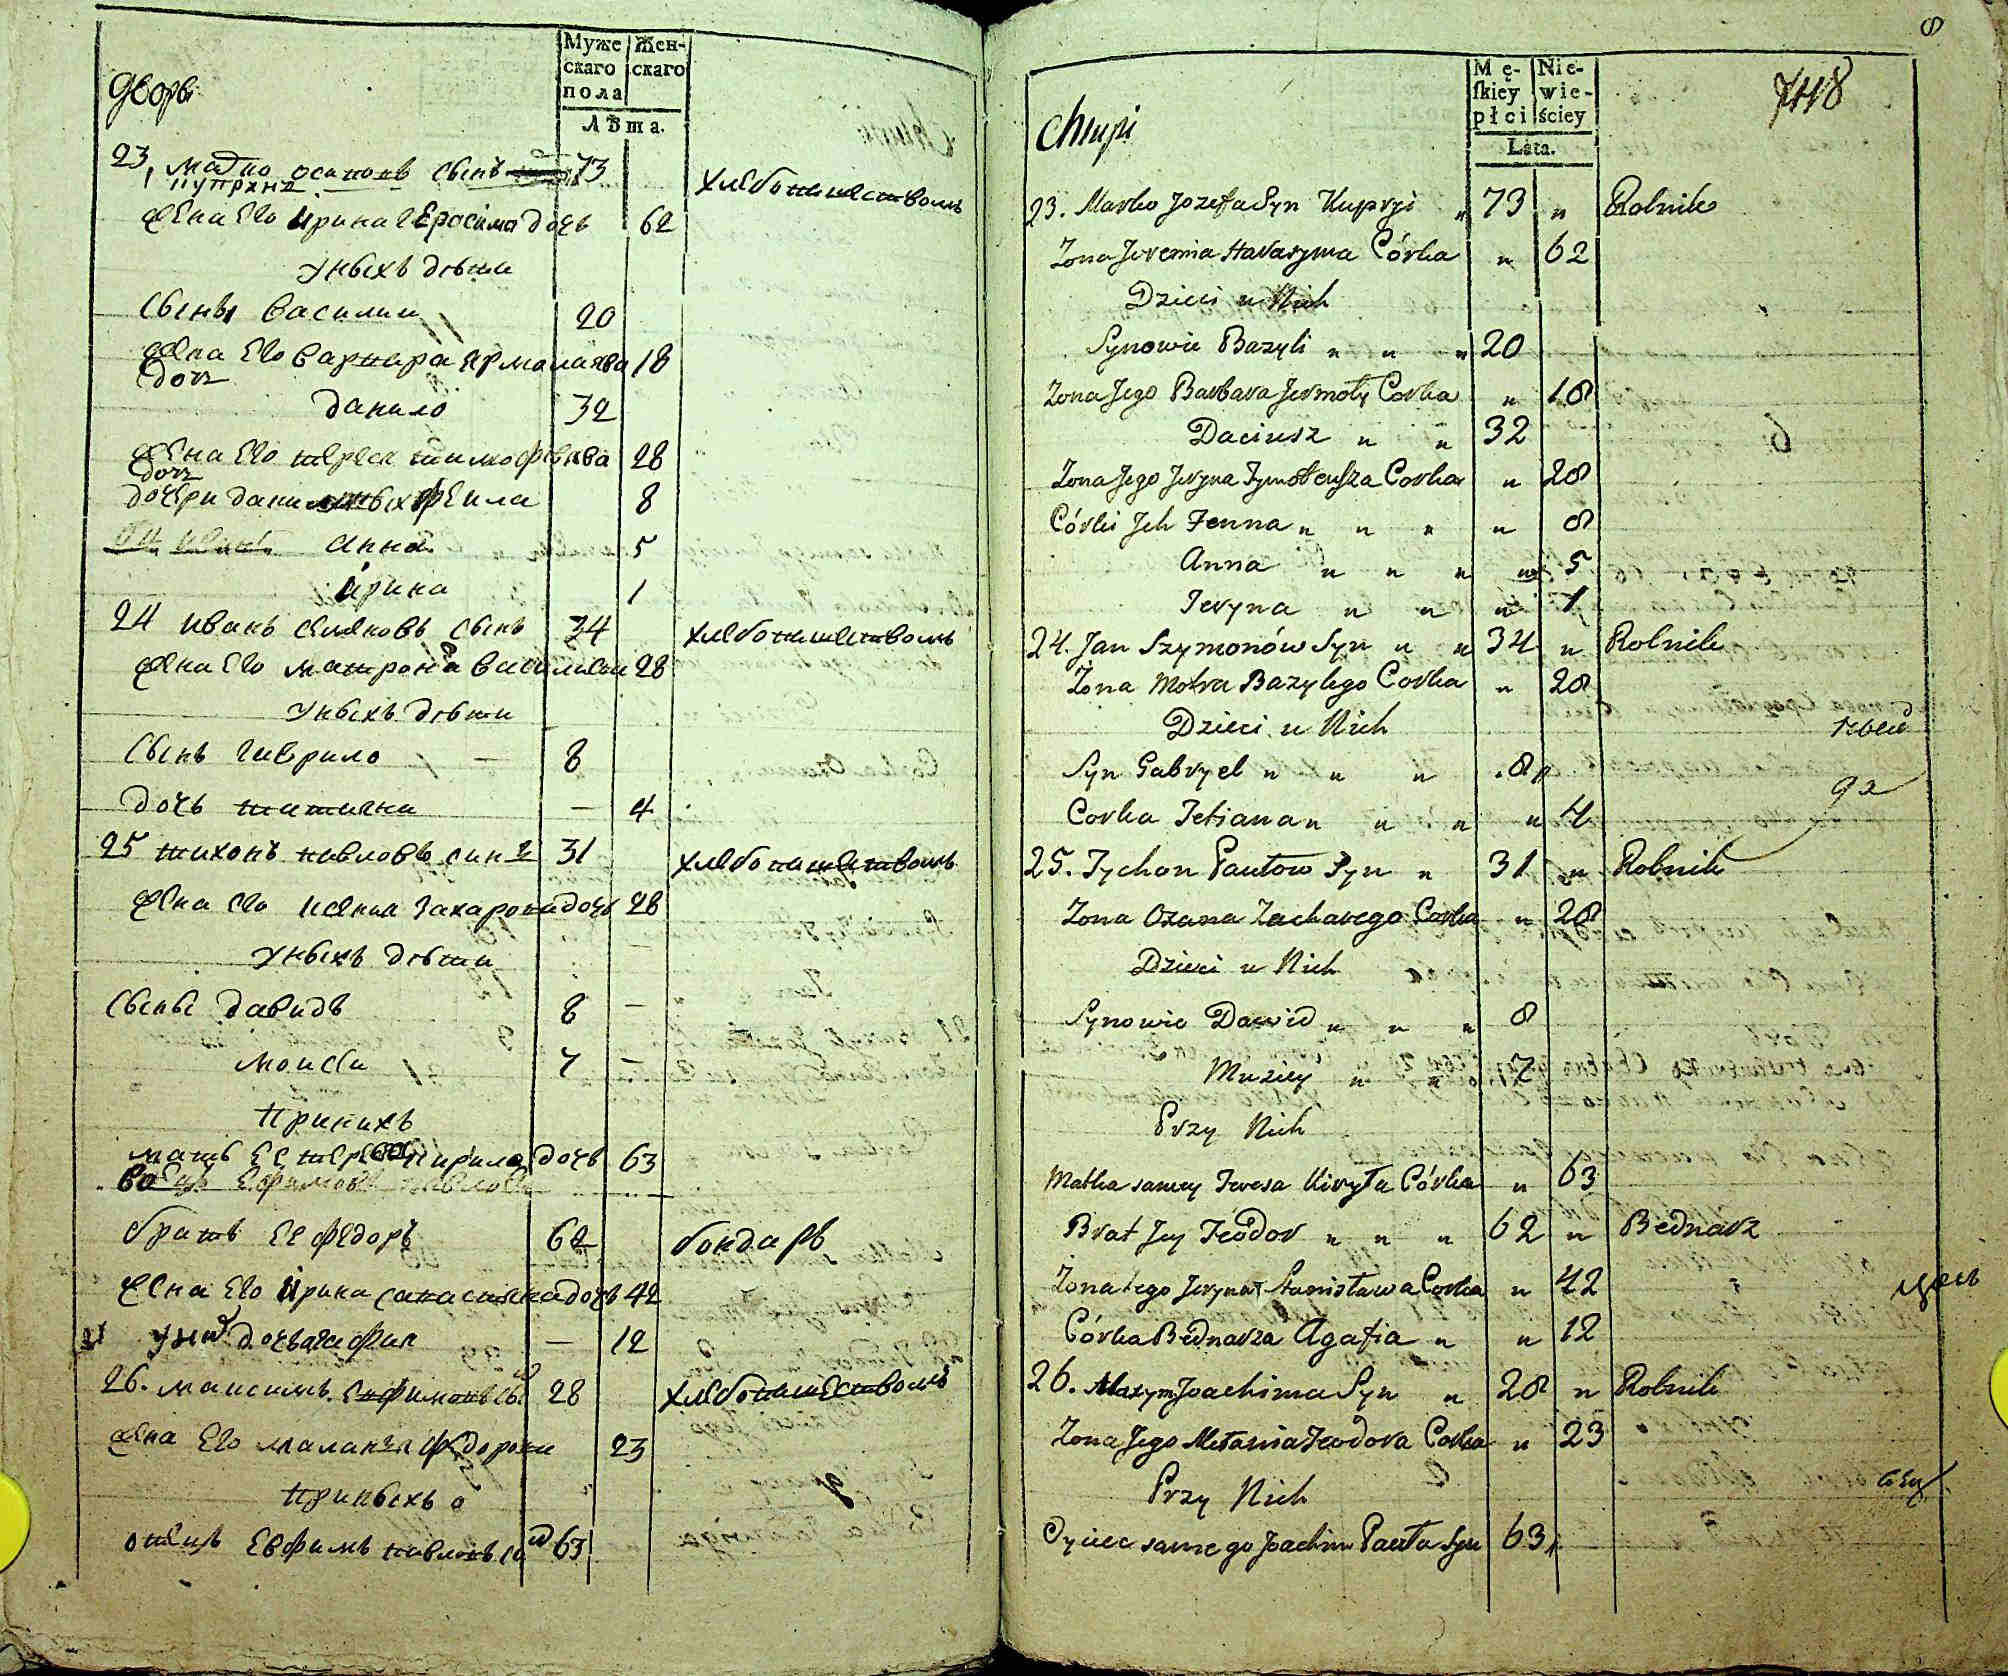 Муже
скаго
пола
Жен-
скаго
Лѣта.
дворъ
23, Марко осиповъ сынъ 73 хлебопашествомъ
купрянъ
жена Его Ирина Герасимо дочь 62
Уныхъ дѣти
Сыны Василии 20
жена Его варвара Ярмолаява 18
дочъ
данило 32
жена Его тимофѣява 28
дочъ
дочери даниловыхъ 8
анна 5
ирина 1
24 иванъ семяновъ сынъ 34 хлебопашествомъ
жена Его матрона василиева 28
Уныхъ дѣти
Сынъ гаврило – 8
дочь татияна – 4
25 тихонъ павловъ синъ 31 хлебопашествомъ
жена Его ксения захарова дочь 28
Уныхъ дѣти
Сыны давидъ 8 –
моисеи 7 –
принихъ
мать Ее кирила дочь 63
братъ Ее Федоръ 62 бондаръ
жена Его Ирина дочь 42
Уних дочь агафия – 12
26. максимъ Ефимовъ 28 хлебопашествомъ
жена Его маланья федорова 23
приныхъ
отецъ Евфимъ павловъ 63
8
Mę-
ſkiey
płci
Nie-
wie-
ściey
Lata.
748
Chłupi
23. Marko Jozefa Syn Kupryi „ 73 „ Rolnik
Zona Jeremia Harasyma Córka „ 62
Dzieci u Nich
Synowie Bazyli „ „ „ 20
Zona Jego Barbara Jermoły Corka „ 18
Daciusz „ „ 32
Zona Jego Jeryna Tymoteusza Corka „ 28
Córki Jch Fenna „ „ „ „ 8
Anna „ „ „ „ 5
Jeryna „ „ „ 1
24. Jan Szymonów Syn „ „ 34 „ Rolnik
Zona Motra Bazylego Corka „ 28
Dzieci u Nich
Syn Gabryel „ „ „ 8 „
Corka Tetiana „ „ „ „ 4
25. Tychon Pawłow Syn „ 31 „ Rolnik
Zona Oxana Zacharego Corka „ 28
Dzieci u Nich
Synowie Dawid „ „ „ 8
Muziey „ „ „ 7
Przy Nich
Matka samey Teresa Kiryła Córka „ 63
Brat Jey Teodor „ „ „ 62 „ Bednarz
Zona Jego Jeryna Stanisława Corka „ 42
Córka Bednarza Agafia „ „ 12
26. Maxym Joachima Syn „ 28 „ Rolnik
Zona Jego Mełania Teodora Corka „ 23
Przy Nich
Oyciec samego Joachim Pawła Syn 63 „